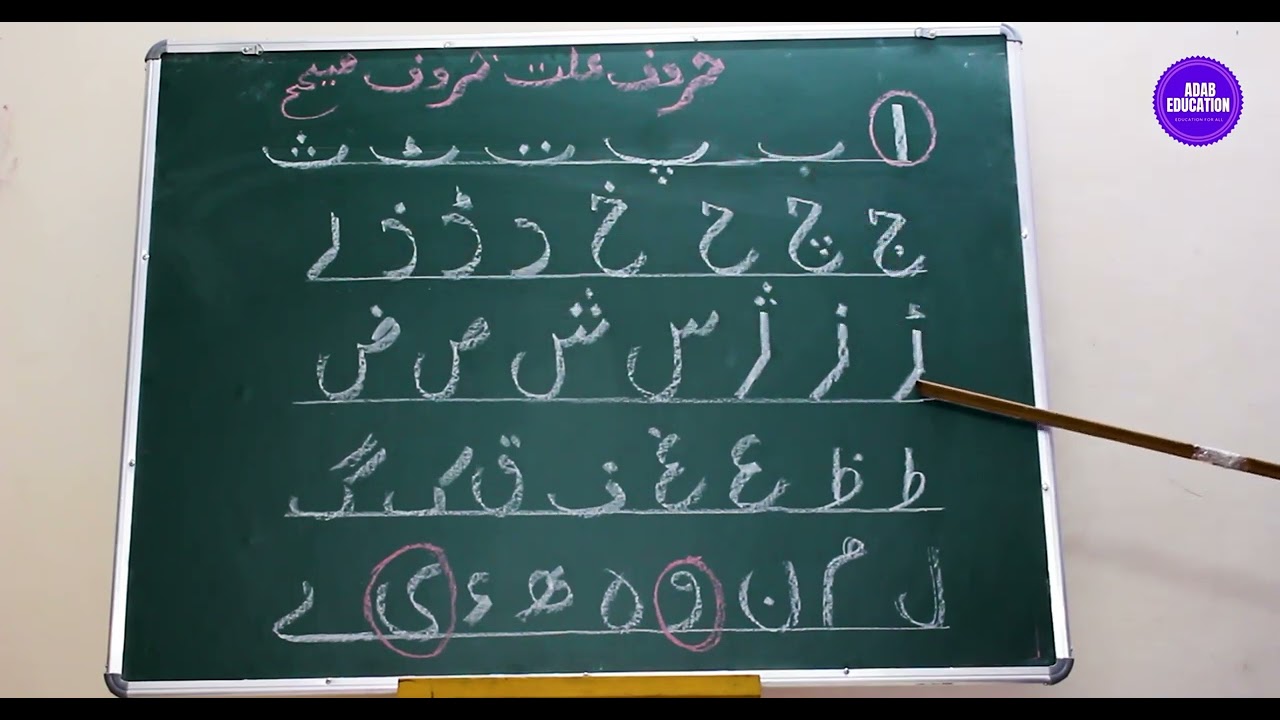 حروف علت، حروف صحیح
ا ب پ ت ٹ ث
ج چ ح خ د ڈ ذ ر
ڑ ز ژ س ش ص ض
ط ظ ع غ ف ق ک گ
ل م ن و ہ ھ ء ی ے
ADAB
EDUCATION
EDUCATION FOR ALL